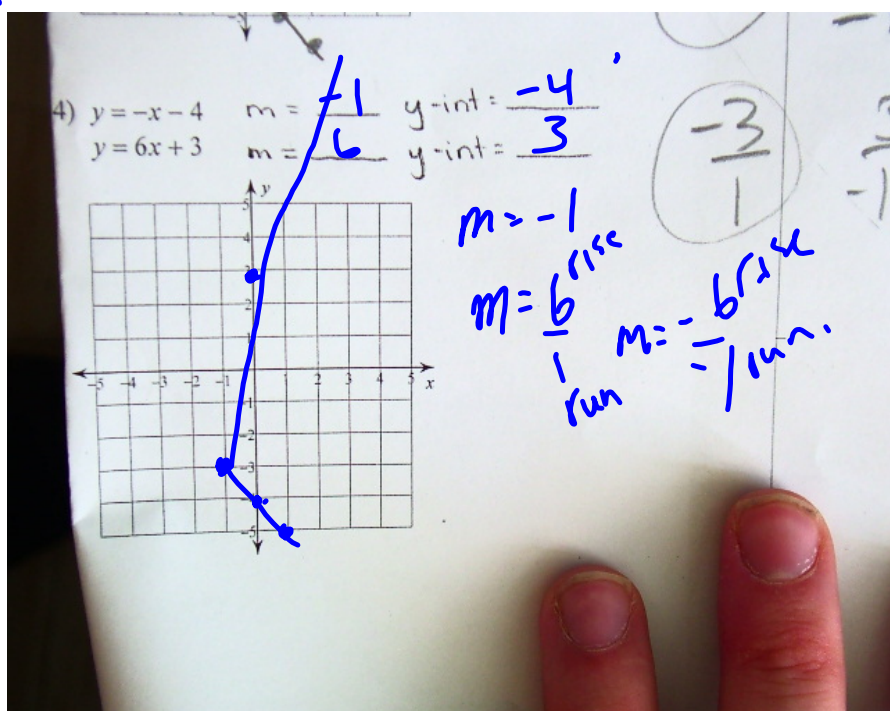 4) y = -x - 4 m = -1 y-int = -4
y = 6x + 3 m = 6 y-int = 3
-3
1
y
5
4
2
1
-5 -4 -3 -2 -1 1 2 3 4 5 x
-1
-2
-3
-5
m = -1
m = 6 rise
1
run
m = -6 rise
-1 run.